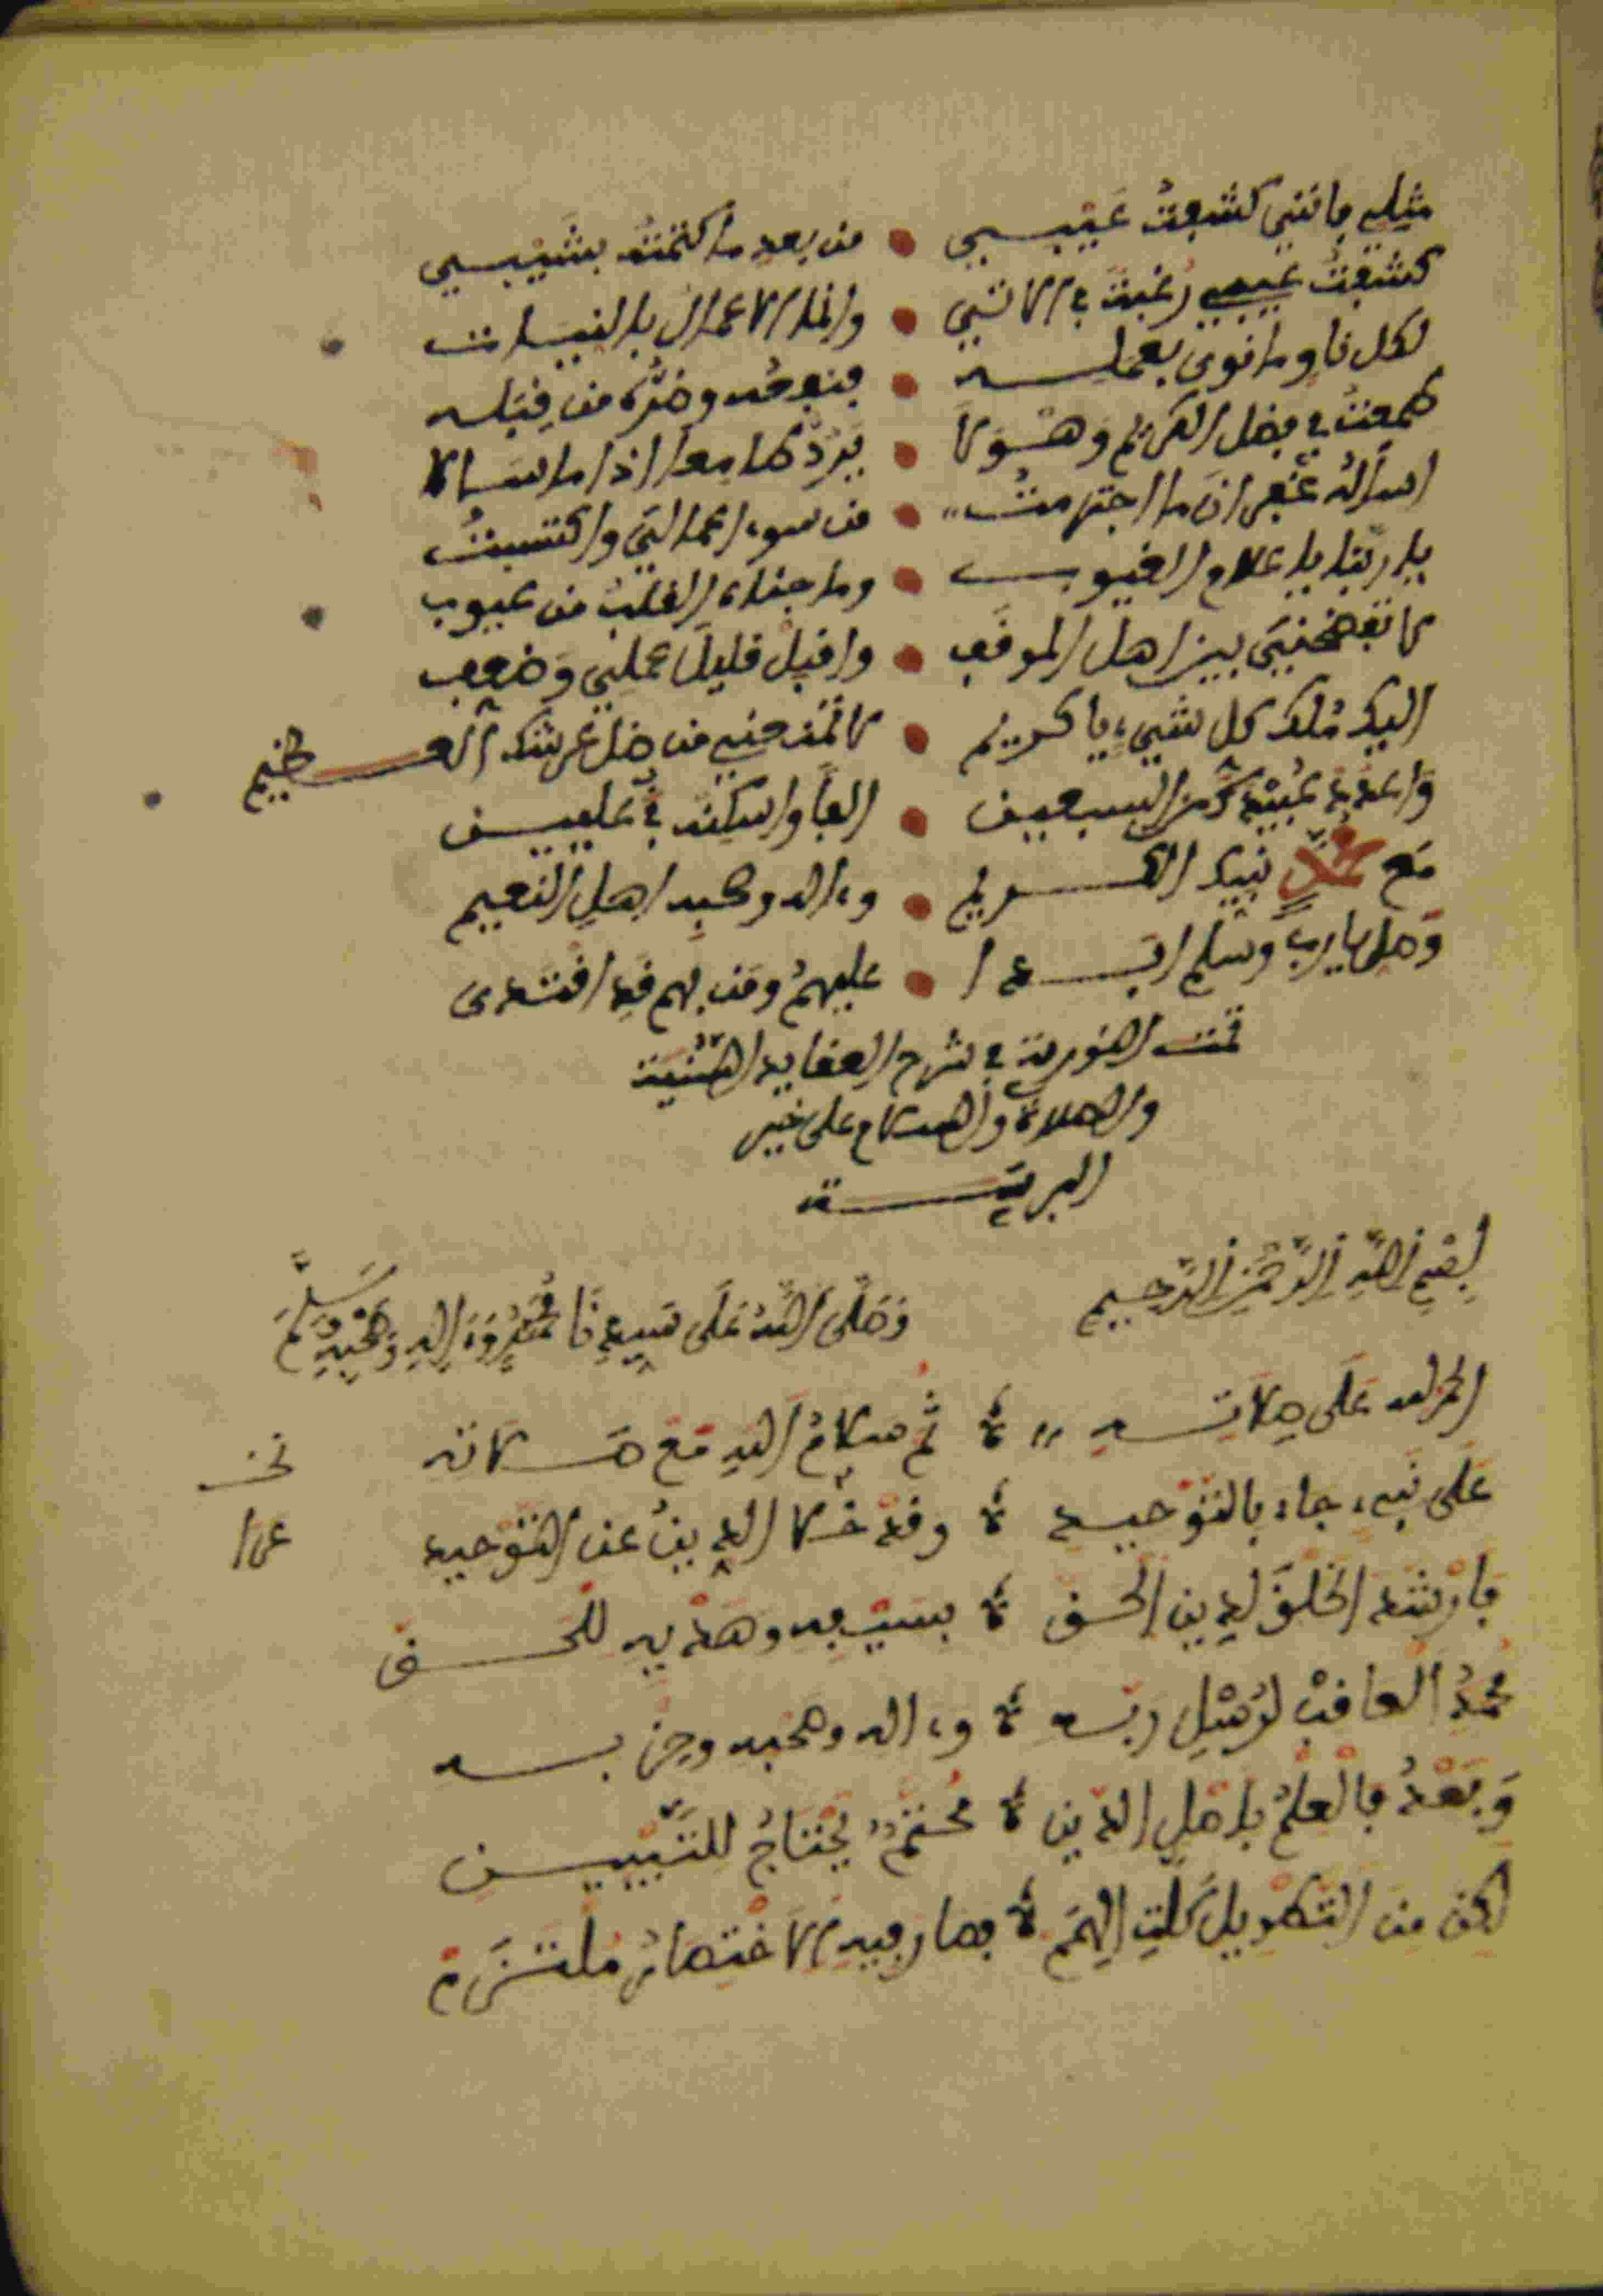 مثلي فإنني كشفتُ عَيْبي • من بعد ما كتمته بشَيْبي
كشفتُ عيبي رغبة في الآتي • وإنما الأعمال بالنيات
لكل ناوٍ ما نوى بعمله • فنفعه وضره من قِبَله
طمعت في فضل الكريم وهْوَ لا • يَرُدُّ طامعا إذا ما سألا
اسأله غفران ما اجترمتُ • من سوء اعمالي واكتسبتُ
يا ربنا يا علام الغيوب • وما جناه القلبُ من عيوب
لا تفضحنّي بين اهل الموقف • واقبلْ قليل عملي وضعفي
اليك مُلك كل شيء يا كريم • لا تمنعني من ظل عرشك العظيم
واعدد عُبَيْدك من السبعين • الفاً واسكنه في عليين
مع محمد نبيك الكريم • وءاله وصحبه اهل النعيم
وصل يا رب وسلم ابدا • عليهمُ ومن بهم قد اقتدى
تمت النورية في شرح العقايد السَّنية
والصلاة والسلام على خير
البرية
بِسْمِ اللهِ الرَّحْمٰنِ الرَّحِيمِ وَصَلَّى اللهُ عَلَى سَيِّدِنَا مُحَمَّدٍ وَءَالِهِ وَصَحْبِهِ وَسَلَّمَ
الحمد لله عَلَى صِلاتِهِ ثُم سلامُ اللهِ مَعْ صَلاته
عَلَى نبيء جاء بالتَّوْحيد وقد خلا الدينُ عن التَّوْحيد عرا
فأرشد الخلقَ لدين الحق بسيفه وهَدْيِه للحق
محمدُ العاقبْ لرُسْلِ ربه وءاله وصحبه وحزبه
وَبَعْدُ فالعلمُ بأصلِ الدين مُحتَّمٌ يَحْتاجُ للتَّبْيين
لكن مِنَ التطويل كلّتِ الهِمَمْ فصار فيه الاختصارُ ملتزَمْ